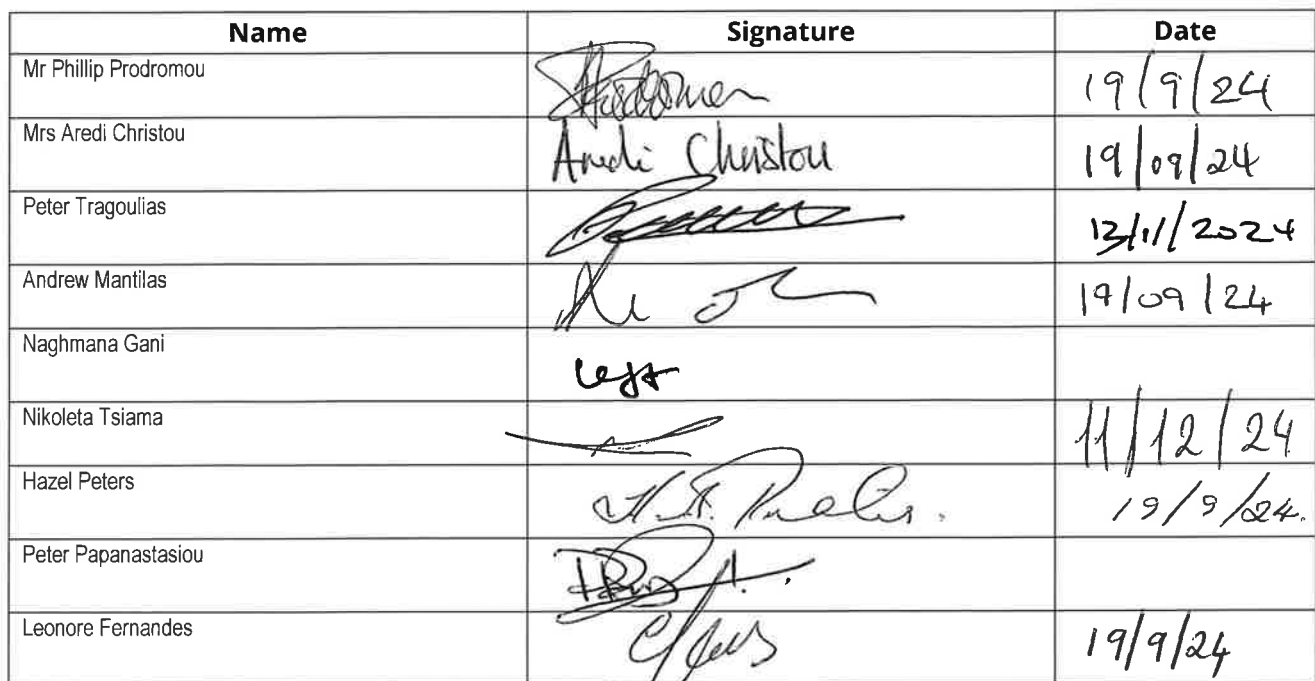 Name Signature Date
Mr Phillip Prodromou 19/9/24
Mrs Aredi Christou Aredi Christou 19/09/24
Peter Tragoulias 13/11/2024
Andrew Mantilas 19/09/24
Naghmana Gani Left
Nikoleta Tsiama 11/12/24
Hazel Peters 19/9/24.
Peter Papanastasiou
Leonore Fernandes 19/9/24